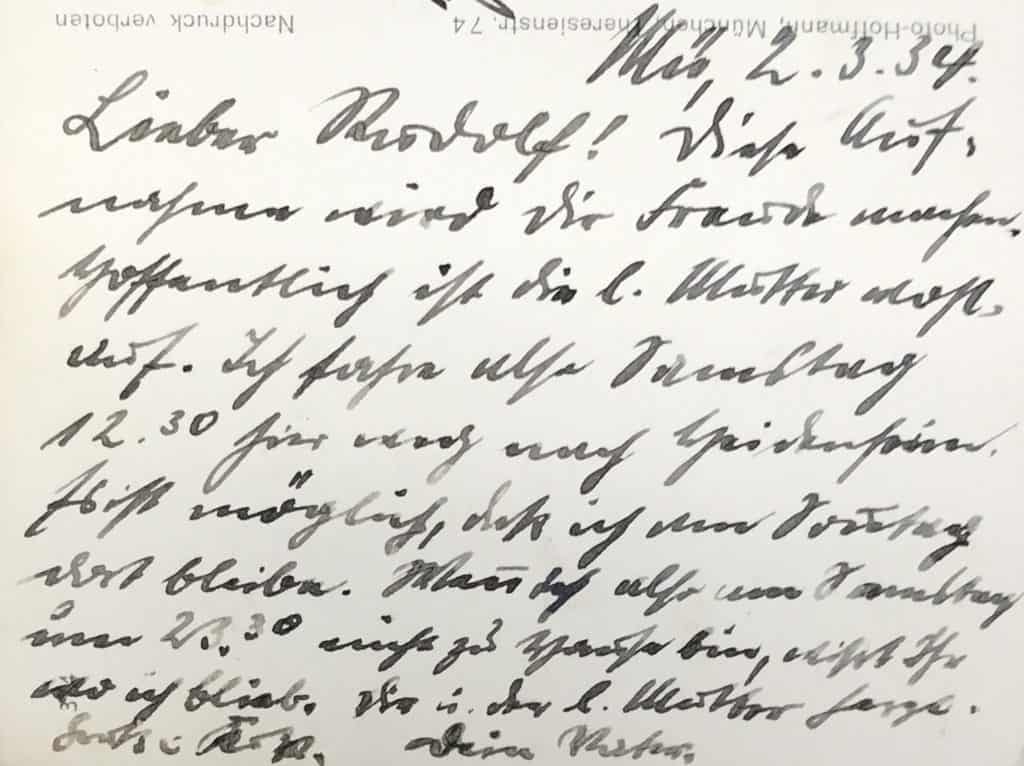 Photo-Hoffmann, München, Theresienstr. 74 Nachdruck verboten
Mü, 2.3.34.
Lieber Rudolf! Diese Auf-
nahme wird Dir Freude machen.
Hoffentlich ist die l. Mutter wohl-
auf. Ich fahre also Samstag
12.30 hier weg nach Heidenheim.
Es ist möglich, daß ich am Sonntag
dort bleibe. Wenn ich also am Samstag
um 23.30 nicht zu Hause bin, wißt Ihr
wo ich blieb. Dir u. der l. Mutter herzl.
Gruß u. Kuß. Dein Vater.